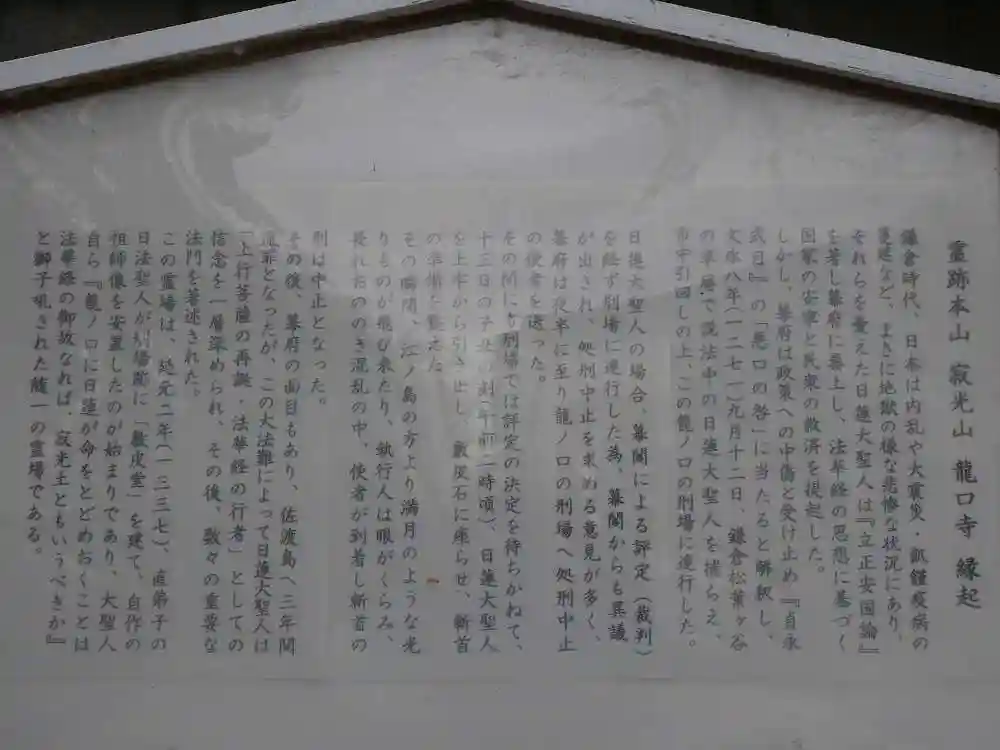 霊跡本山 寂光山 龍口寺 縁起
鎌倉時代、日本は内乱や大震災・飢饉疫病の
蔓延など、まさに地獄の様な悲惨な状況にあり、
それらを憂えた日蓮大聖人は『立正安国論』
を著し幕府に奏上し、法華経の思想に基づく
国家の安寧と民衆の救済を提起した。
しかし、幕府は政策への中傷と受け止め『貞永
式目』の「悪口の咎」に当たると解釈し、
文永八年(一二七一)九月十二日、鎌倉松葉ヶ谷
の草庵で説法中の日蓮大聖人を捕らえ、
市中引回しの上、この龍ノ口の刑場に連行した。
日蓮大聖人の場合、幕閣による評定(裁判)
を経ず刑場に連行した為、幕閣からも異議
が出され、処刑中止を求める意見が多く、
幕府は夜半に至り龍ノ口の刑場へ処刑中止
の使者を送った。
その間にも刑場では評定の決定を待ちかねて、
十三日の子丑の刻(午前二時頃)、日蓮大聖人
を土牢から引き出し、敷皮石に座らせ、斬首
の準備を整えた
その瞬間、江ノ島の方より満月のような光
りものが飛び来たり、執行人は眼がくらみ、
畏れおののき混乱の中、使者が到着し斬首の
刑は中止となった。
その後、幕府の面目もあり、佐渡島へ三年間
流罪となったが、この大法難によって日蓮大聖人は
「上行菩薩の再誕・法華経の行者」としての
信念を一層深められ、その後、数々の重要な
法門を著述された。
この霊場は、延元二年(一三三七)、直弟子の
日法聖人が刑場跡に「敷皮堂」を建て、自作の
祖師像を安置したのが始まりであり、大聖人
自ら『龍ノ口に日蓮が命をとどめおくことは
法華経の御故なれば、寂光土ともいうべきか』
と獅子吼された随一の霊場である。